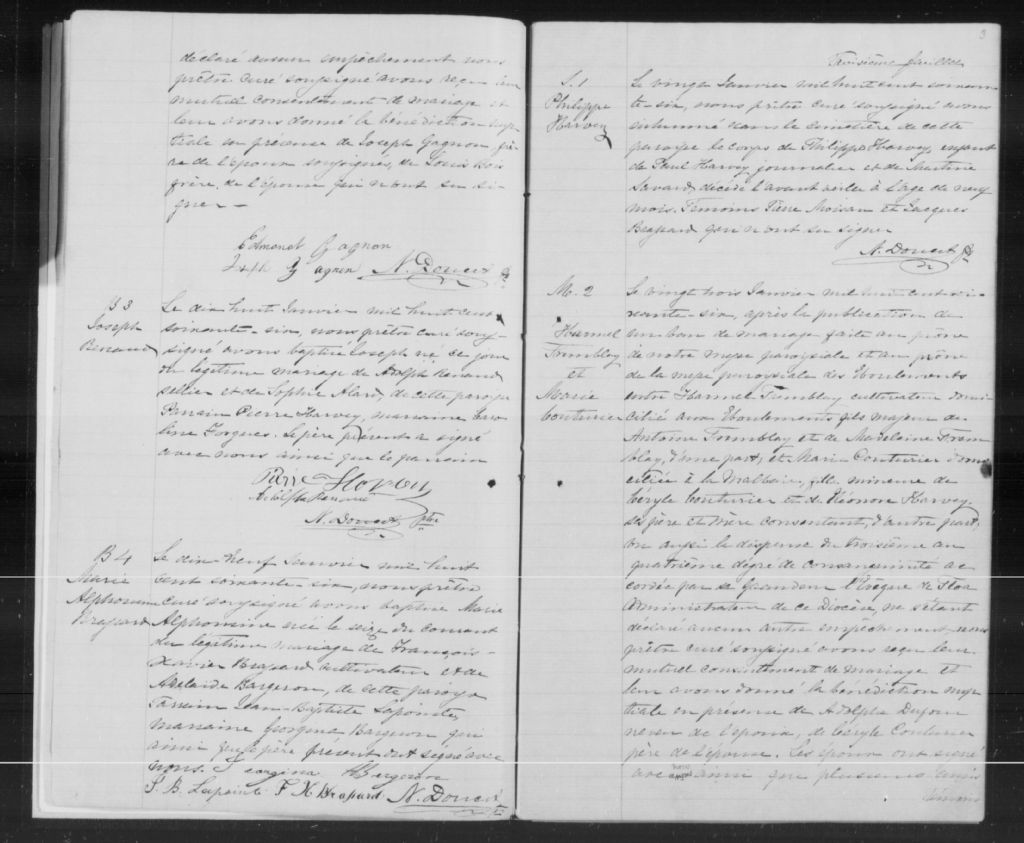 déclaré aucun empêchement nous
prêtre curé soussigné avons reçu leur
mutuel consentement de mariage et
leur avons donné la bénédiction nup-
tiale en présence de Joseph Gagnon frè-
re de l'époux soussigné, de Louis Bois
frère de l'épouse qui n'ont su si-
gner —
Edmond Gagnon
Joseph Gagnon N. Doucet Ptre
B 3
Joseph
Renaud
Le dix huit Janvier mil huit cent
soixante-six, nous prêtre curé sous-
signé avons baptisé Joseph né ce jour
du légitime mariage de Adolphe Renaud
sellier et de Sophie Alard, de cette paroisse
Parrain Pierre Harvey, marraine Caro-
line Forgues. Le père présent a signé
avec nous ainsi que le parrain
Pierre Hervey
Adolphe Renaud
N. Doucet ptre
B 4
Marie
Alphonsine
Brassard
Le dix-neuf Janvier mil huit
cent soixante-six, nous prêtre
curé soussigné avons baptisé Marie
Alphonsine née le seize du courant
du légitime mariage de François-
Xavier Brassard cultivateur et de
Adelaide Bargeron, de cette paroisse
Parrain Jean-Baptiste Lapointe,
marraine Georgina Bargeron qui
ainsi que le père present ont signé avec
nous. Georgina Bergeron
J. B. Lapointe F X Brassard N. Doucet
3
Troisième feuillet
S. 1
Philippe
Harvey
Le vingt Janvier mil huit cent soixan-
te-six, nous prêtre curé soussigné avons
inhumé dans le cimetière de cette
paroisse le corps de Philippe Harvey, enfant
de Paul Harvey journalier et de
Savard, décédé l'avant veille à l'age de neuf
mois. Temoins Pierre Moisan et Jacques
Brassard qui n'ont su signer
N. Doucet Ptre
M. 2
Harmel
Tremblay
et
Marie
Couturier
Le vingt trois Janvier mil huit cent soi-
xante-six, après la publication de
un ban de mariage faite au prône
de notre messe paroissiale et au prône
de la messe paroissiale des Eboulements
entre Harmel Tremblay cultivateur domi-
cilié aux Eboulements fils majeur de
Antoine Tremblay et de Madelaine Trem
blay, d'une part; et Marie Couturier domi
ciliée à la Malbaie, fille mineure de
Béryle Couturier et de Eléonore Harvey
ses père et mère consentant, d'autre part;
vu aussi la dispense du troisième au
quatrième dégré de consanguinité ac-
cordée par sa Grandeur l'Evêque de Tloa
Administrateur de ce Diocèse, ne s'étant
déclaré aucun autre empêchement, nous
prêtre curé soussigné avons reçu leur
mutuel consentement de mariage et
leur avons donné la bénédiction nup-
tiale en présence de Adolphe Dufour
neveu de l'époux, de Béryle Couturier
père de l'épouse. Les époux ont signé
avec nous ainsi que plusieurs amis